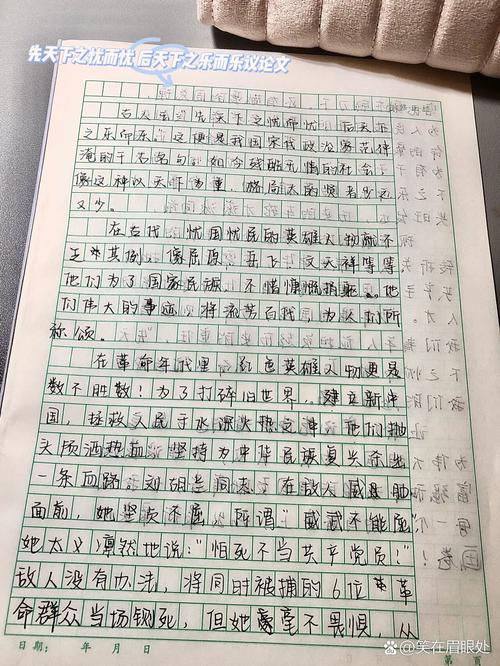 先天下之忧而忧 后天下之乐而乐议论文
古人云当先天下之忧而忧，后天下
之乐而乐。这便是我国宋代政治家范仲
淹的千古名句。如今残酷无情的社会，
像这种以天下为重、格局大的贤者少之
又少。
在古代，忧国忧民的英雄人物就不
乏其例，像屈原、岳飞、文天祥等等，
他们为了国家民族，不惜慷慨捐躯。他
们伟大的事迹，将流芳百世，为人们所
称颂。
在革命年代里，红色英雄人物更是
数不胜数！为了打碎旧世界，建立新中
国，拯救人民于水深火热之中，他们抛
头颅洒热血，坚持为中华民族复兴杀出
一条血路。刘胡兰同志，在敌人威逼
面前，她坚贞不屈，所谓"威武不能屈"
她大义凛然地说："怕死不当共产党员！"
敌人没有办法，将同时被捕的6位革
命群众当场铡死，但她毫不畏惧，从
日期： 年 月 日
笑在眉眼处